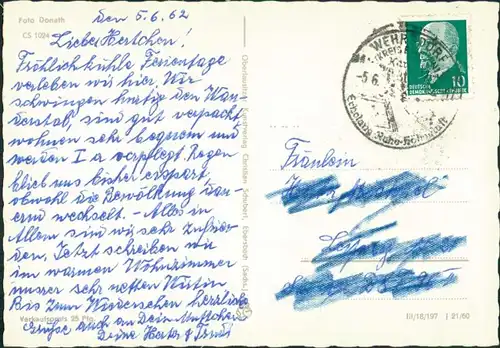 Foto Donath
CS 1094
den 5.6.62
Liebes Hertchen!
Fröhlichkühle Ferientage
verleben wir hier. Wir
schwingen kräftig den Wan-
derstab, sind gut verpackt,
wohnen sehr bequem und
werden I a verpflegt. Regen
blieb uns bisher erspart,
obwohl die Bewölkung dau-
ernd wechselt. – Alles in
Allem sind wir sehr zufrie-
den. Jetzt schreiben wir
im warmen Wohnzimmer
unsrer sehr netten Wirtin.
Bis zum Wiedersehen herzliche
Grüße auch an Dein Muttchen
Deine Herta &
Verkaufspreis 25 Pfg.
Oberlausitzer Kunstverlag Christian Schubert, Ebersbach (Sachs.)
WEHRSDORF
-5.6.
Erholung-Ruhe-
10
DEUTSCHE
DEMOKRATISCHE REPUBLIK
Fräulein
III/18/197 J 21/60